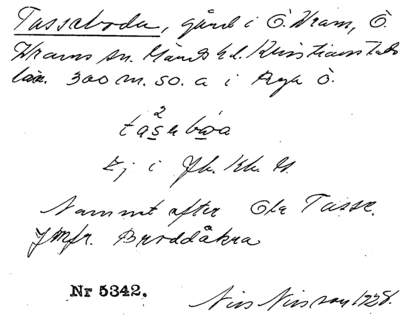 Tasseboda, gård i Ö. Vram, Ö.
Vrams sn. Gärds hd. Kristianstads
län. 300 m. SO. a i Nya Ö.
tasabωa
Ej i Jb. Kb. Gs.
Namnet efter Ola Tasse.
Jmfr. Broddåkra
Nr 5342.
Nils Nilsson 1928.